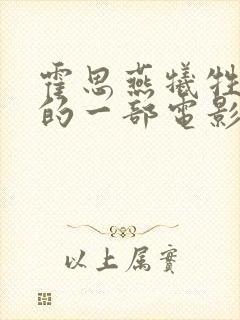 霍思燕犧牲
的一部電影
以上属實